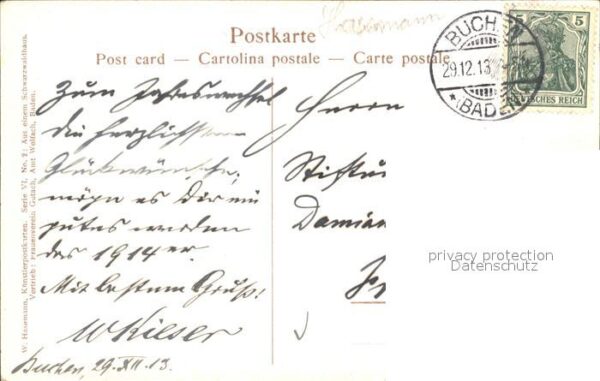 Hasemann
Postkarte
Post card — Cartolina postale — Carte postale
BUCHEN
29.12.13
* (BADEN) *
5 5
DEUTSCHES REICH
Zum Jahreswechsel
die herzlichsten
Glückwünsche,
möge es Dir ein
gutes werden
das 1914er.
Mit bestem Gruß!
W Kieser
Buchen, 29. XII. 13.
Herrn
Damian
privacy protection
Datenschutz
W. Hasemann, Künstlerpostkarten. Serie VI, No. 2: Aus einem Schwarzwaldhaus.
Vertrieb: Frauenverein Gutach, Amt Wolfach, Baden.